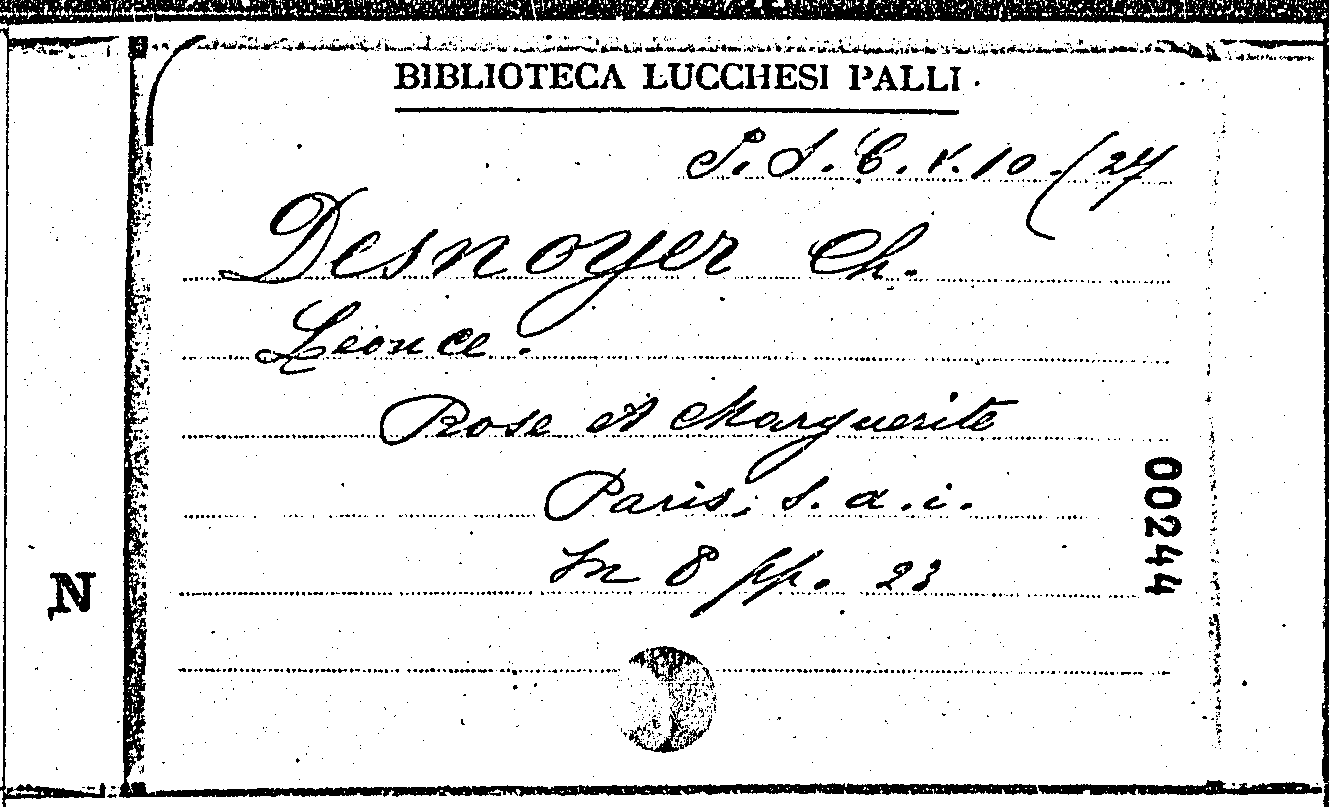 BIBLIOTECA LUCCHESI PALLI
S. C. x. 10. (27
Desnoyer Ch.
Léonce.
Rose et Marguerite
Paris, s. a. i.
In 8 pp. 23
00244
N